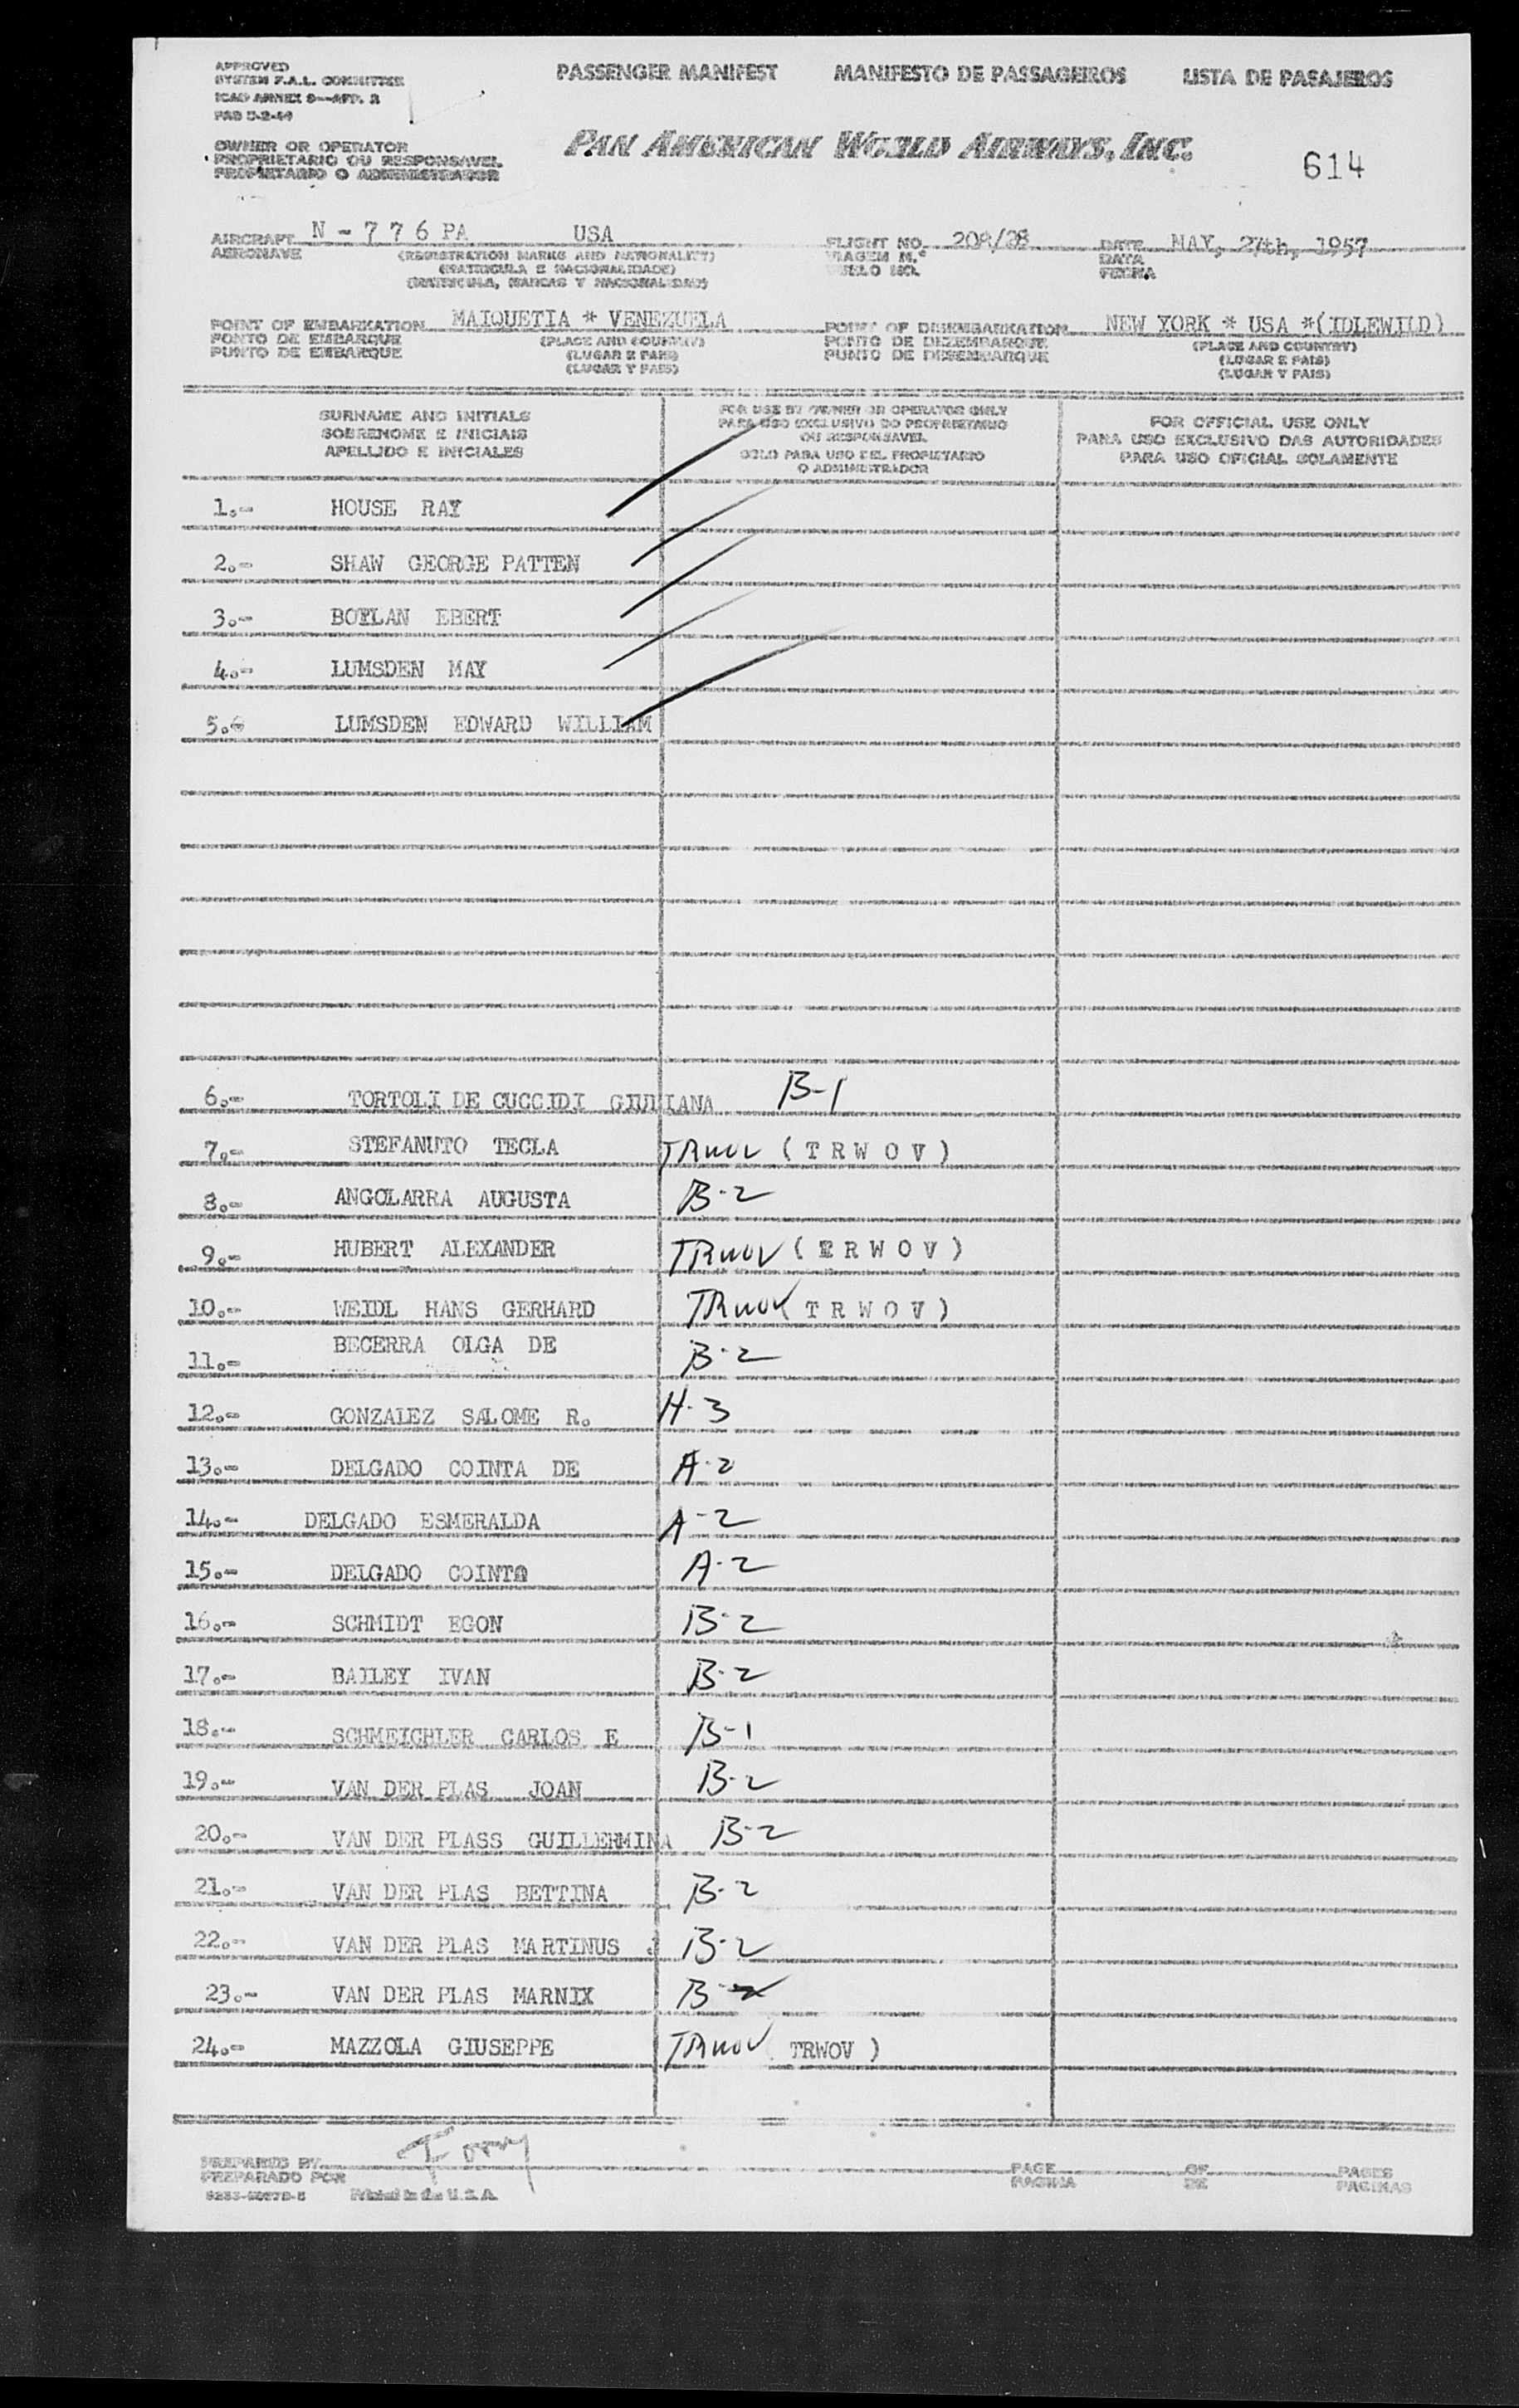 APPROVED
SYSTEM F.A.L. COMMITTEE
ICAO ANNEX 9—APP. 2
PASSENGER MANIFEST MANIFESTO DE PASSAGEIROS LISTA DE PASAJEROS
OWNER OR OPERATOR
PROPRIETARIO OU RESPONSAVEL
PROPIETARIO O ADMINISTRADOR
PAN AMERICAN WORLD AIRWAYS, INC.
614
AIRCRAFT N - 7 7 6 PA USA FLIGHT NO. 208/28 DATE MAY, 27th, 1957
AERONAVE (REGISTRATION MARKS AND NATIONALITY) VIAGEM N.º DATA
(MATRICULA E NACIONALIDADE) VUELO NO. FECHA
(MATRICULA, MARCAS Y NACIONALIDAD)
POINT OF EMBARKATION MAIQUETIA * VENEZUELA POINT OF DISEMBARKATION NEW YORK * USA *(IDLEWILD)
PONTO DE EMBARQUE (PLACE AND COUNTRY) PONTO DE DEZEMBARQUE (PLACE AND COUNTRY)
PUNTO DE EMBARQUE (LUGAR E PAIS) PUNTO DE DESEMBARQUE (LUGAR E PAIS)
(LUGAR Y PAIS) (LUGAR Y PAIS)
SURNAME AND INITIALS
SOBRENOME E INICIAIS
APELLIDO E INICIALES
FOR USE BY OWNER OR OPERATOR ONLY
PARA USO EXCLUSIVO DO PROPRIETARIO
OU RESPONSAVEL
SOLO PARA USO DEL PROPIETARIO
O ADMINISTRADOR
FOR OFFICIAL USE ONLY
PARA USO EXCLUSIVO DAS AUTORIDADES
PARA USO OFICIAL SOLAMENTE
1.- HOUSE RAY
2.- SHAW GEORGE PATTEN
3.- BOYLAN EBERT
4.- LUMSDEN MAY
5. LUMSDEN EDWARD WILLIAM
6.- TORTOLI DE CUCCIDI GIULIANA B-1
7.- STEFANUTO TECLA TRWOV (T R W O V)
8.- ANGOLARRA AUGUSTA B-2
9.- HUBERT ALEXANDER TRWOV (T R W O V)
10.- WEIDL HANS GERHARD TRWOV (T R W O V)
11.- BECERRA OLGA DE B-2
12.- GONZALEZ SALOME R. H-3
13.- DELGADO COINTA DE A-2
14.- DELGADO ESMERALDA A-2
15.- DELGADO COINTA A-2
16.- SCHMIDT EGON B-2
17.- BAILEY IVAN B-2
18.- SCHMEICHLER CARLOS E B-1
19.- VAN DER PLAS JOAN B-2
20.- VAN DER PLASS GUILLERMINA B-2
21.- VAN DER PLAS BETTINA B-2
22.- VAN DER PLAS MARTINUS J B-2
23.- VAN DER PLAS MARNIX B-2
24.- MAZZOLA GIUSEPPE TRWOV TRWOV )
PREPARED BY PAGE OF PAGES
PREPARADO POR PAGINA DE PAGINAS
Printed in the U. S. A.